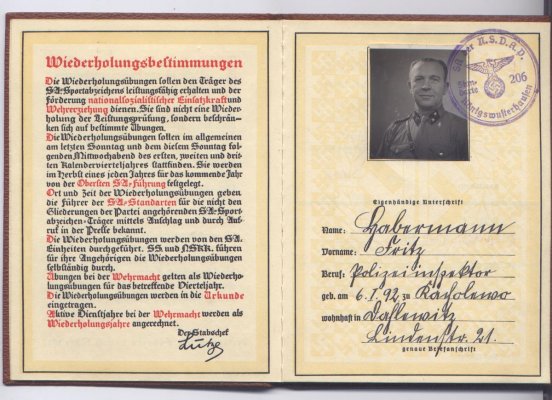 Wiederholungsbestimmungen
Die Wiederholungsübungen sollen den Träger des
SA-Sportabzeichens leistungsfähig erhalten und der
Förderung nationalsozialistischer Einsatzkraft und
Wehrerziehung dienen. Sie sind nicht eine Wieder-
holung der Leistungsprüfung, sondern beschrän-
ken sich auf bestimmte Übungen.
Die Wiederholungsübungen sollen im allgemeinen
am letzten Sonntag und dem diesem Sonntag fol-
genden Mittwochabend des ersten, zweiten und drit-
ten Kalendervierteljahres stattfinden. Sie werden
im Herbst eines jeden Jahres für das kommende Jahr
von der Obersten SA-Führung festgelegt.
Ort und Zeit der Wiederholungsübungen geben
die Führer der SA-Standarten für die nicht den
Gliederungen der Partei angehörenden SA-Sport-
abzeichen-Träger mittels Anschlag und durch Auf-
ruf in der Presse bekannt.
Die Wiederholungsübungen werden von den SA-
Einheiten durchgeführt. SS und NSKK. führen
für ihre Angehörigen die Wiederholungsübungen
selbständig durch.
Übungen bei der Wehrmacht gelten als Wiederho-
lungsübungen für das betreffende Vierteljahr.
Die Wiederholungsübungen werden in die Urkunde
eingetragen.
Aktive Dienstjahre bei der Wehrmacht werden als
Wiederholungsjahre angerechnet.
Der Stabschef
Lutze
SA der N.S.D.A.P.
206
Königswusterhausen
Eigenhändige Unterschrift
Name: Habermann
Vorname: Fritz
Beruf: Polizeiinspektor
geb. am 6.1.92 zu
wohnhaft in Dahlewitz
Lindenstr. 21.
genaue Briefanschrift